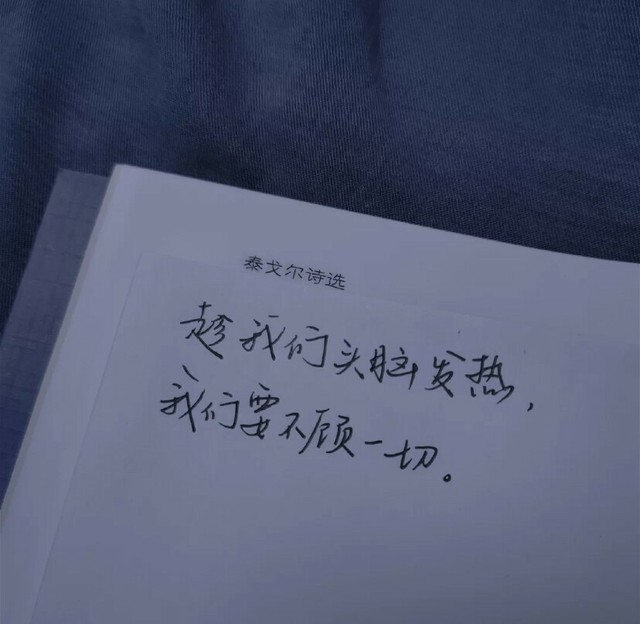 泰戈尔诗选
趁我们头脑发热，
我们要不顾一切。